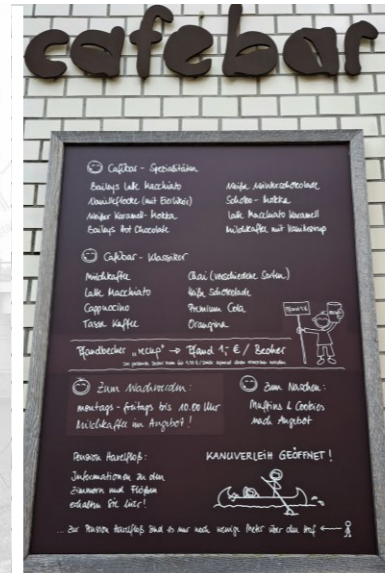 cafébar
Cafébar - Spezialitäten
Baileys Latte Macchiato
Vanilleflocke (mit Eierlikör)
Weißer Karamell-Mokka
Baileys Hot Chocolate
Weiße Mokka
Latte Macchiato Karamell
Milchkaffee mit Vanillesirup
Cafébar - Klassiker
Milchkaffee
Latte Macchiato
Cappuccino
Tasse Kaffee
Chai (verschiedene Sorten)
Heiße Schokolade
Premium Cola
Orangina
Pfandbecher „recup" → Pfand 1,- € / Becher
Zum Wachwerden:
montags - freitags bis 10.00 Uhr
Milchkaffee im Angebot!
Zum Naschen:
Muffins & Cookies
nach Angebot
Pension Havelfloß:
Informationen zu den
Zimmern und Flößen
erhalten Sie hier!
KANUVERLEIH GEÖFFNET!
... zur Pension Havelfloß sind es nur noch wenige Meter über den Hof ←